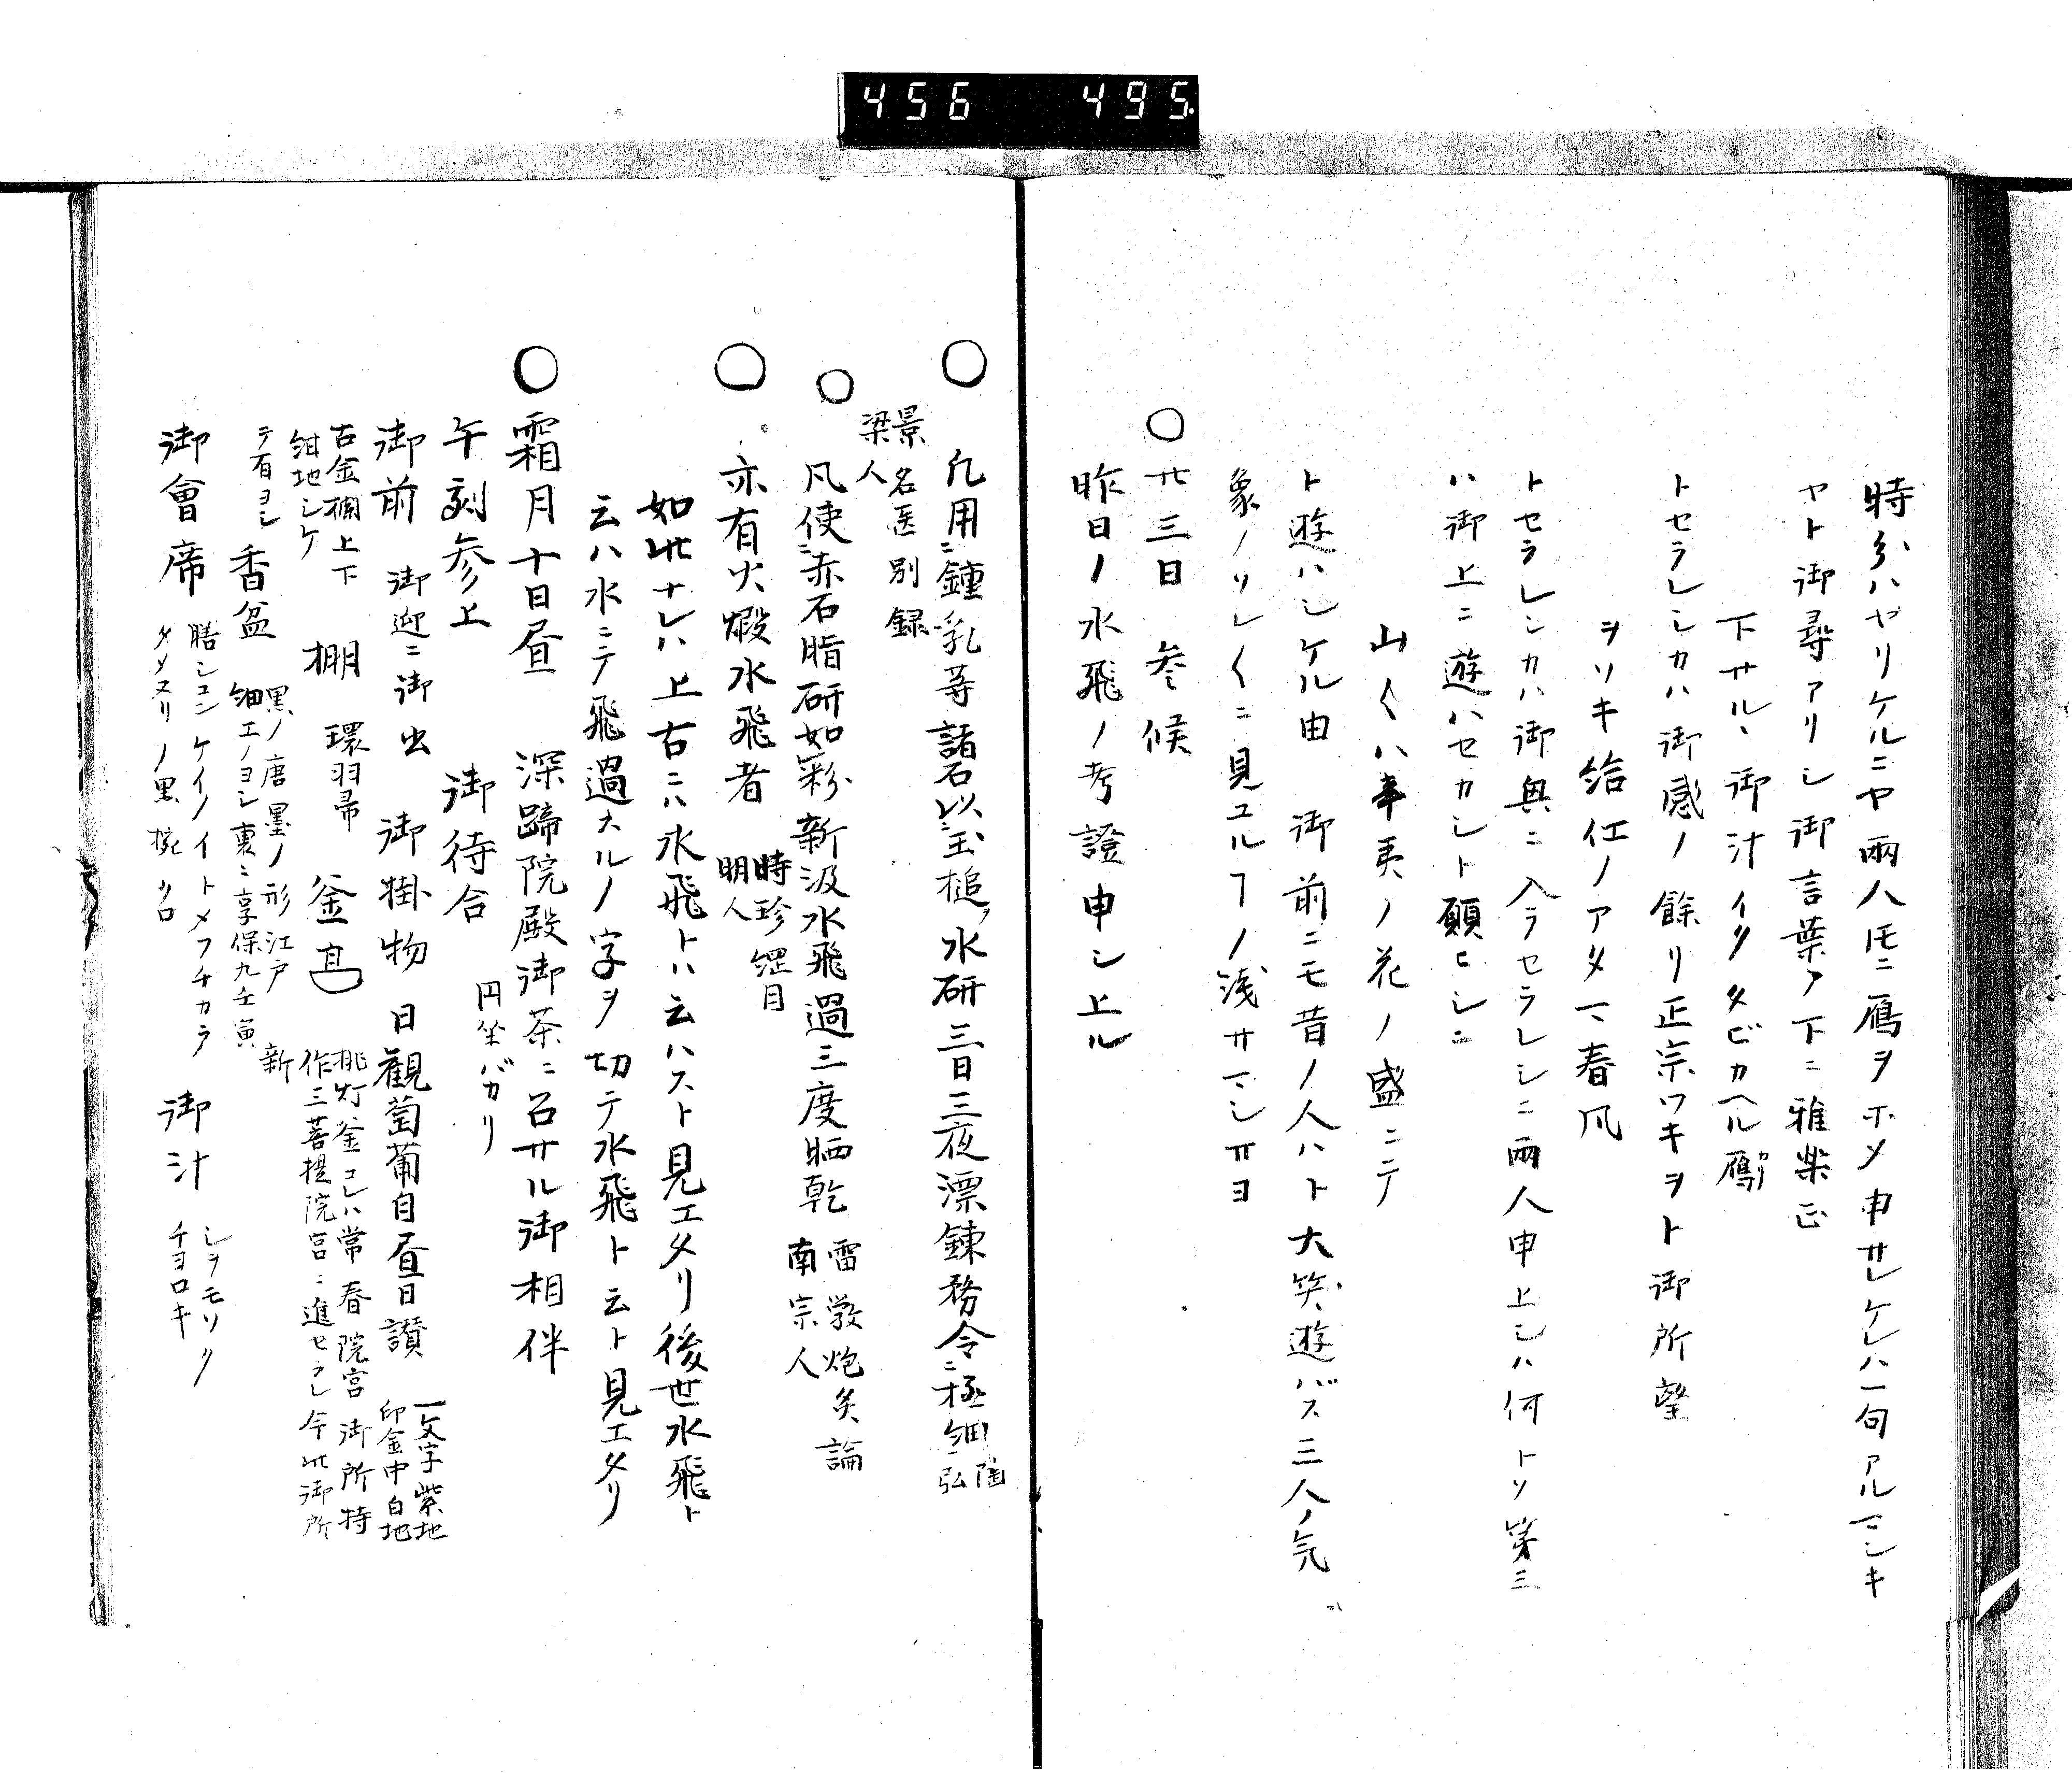 456 495.
時分ハヤリケルニヤ兩人ﾄﾓニ鴈ヲホメ申サレケレハ一句アルマシキ
ヤト御尋アリシ御言葉ノ下ニ雅樂正
下サルヽ御汁イクタビカヘル鴈
トセラレシカハ御感ノ餘リ正宗ワキヲト御所望
ヲソキ給仕ノアタマヽ春風
トセラレシカハ御奥ニ入ラセラレシニ兩人申上シハ何トソ第三
ハ御上ニ遊ハセカシト願ヒシニ
山〱ハ辛夷ノ花ノ盛ニテ
ト遊ハシケル由 御前ニモ昔ノ人ハト大笑遊バス三人ノ気
象ノソレ〱ニ見ユルヿノ浅サマシサヨ
○廿三日 參候
昨日ノ水飛ノ考證申シ上ル
○凡用ニ鍾乳等諸石以玉槌水研三日三夜漂錬務令ニ極細 陶弘
景名医別録 梁人
○凡使ニ赤石脂研如粉新汲水飛過三度晒乾 雷斅炮炙論 南宗人
○亦有火煅水飛者 時珍綱目 明人
如此ナレハ上古ニハ水飛トハ云ハスト見エタリ後世水飛ト
云ハ水ニテ飛過スルノ字ヲ切テ水飛ト云ト見エタリ
○霜月十日昼 深諦院殿御茶ニ召サル御相伴
午刻参上 御待合 円坐バカリ
御前 御迎ニ御出 御掛物 日觀葡萄自畫自讃 一文字紫地 印金中白地
古金襴上下 紺地シケ 棚 環羽帚 釜 挑灯釜コレハ常春院宮御所持 作三菩提院宮ニ進セラレ今此御所
テ有ヨシ 香盆 黒ノ唐墨ノ形江戸 細工ノヨシ裏ニ享保九壬寅 新
御會席 膳シユンケイノイトメフチカラ タメヌリノ黒椀 御汁 シヲモソク チヨロキ